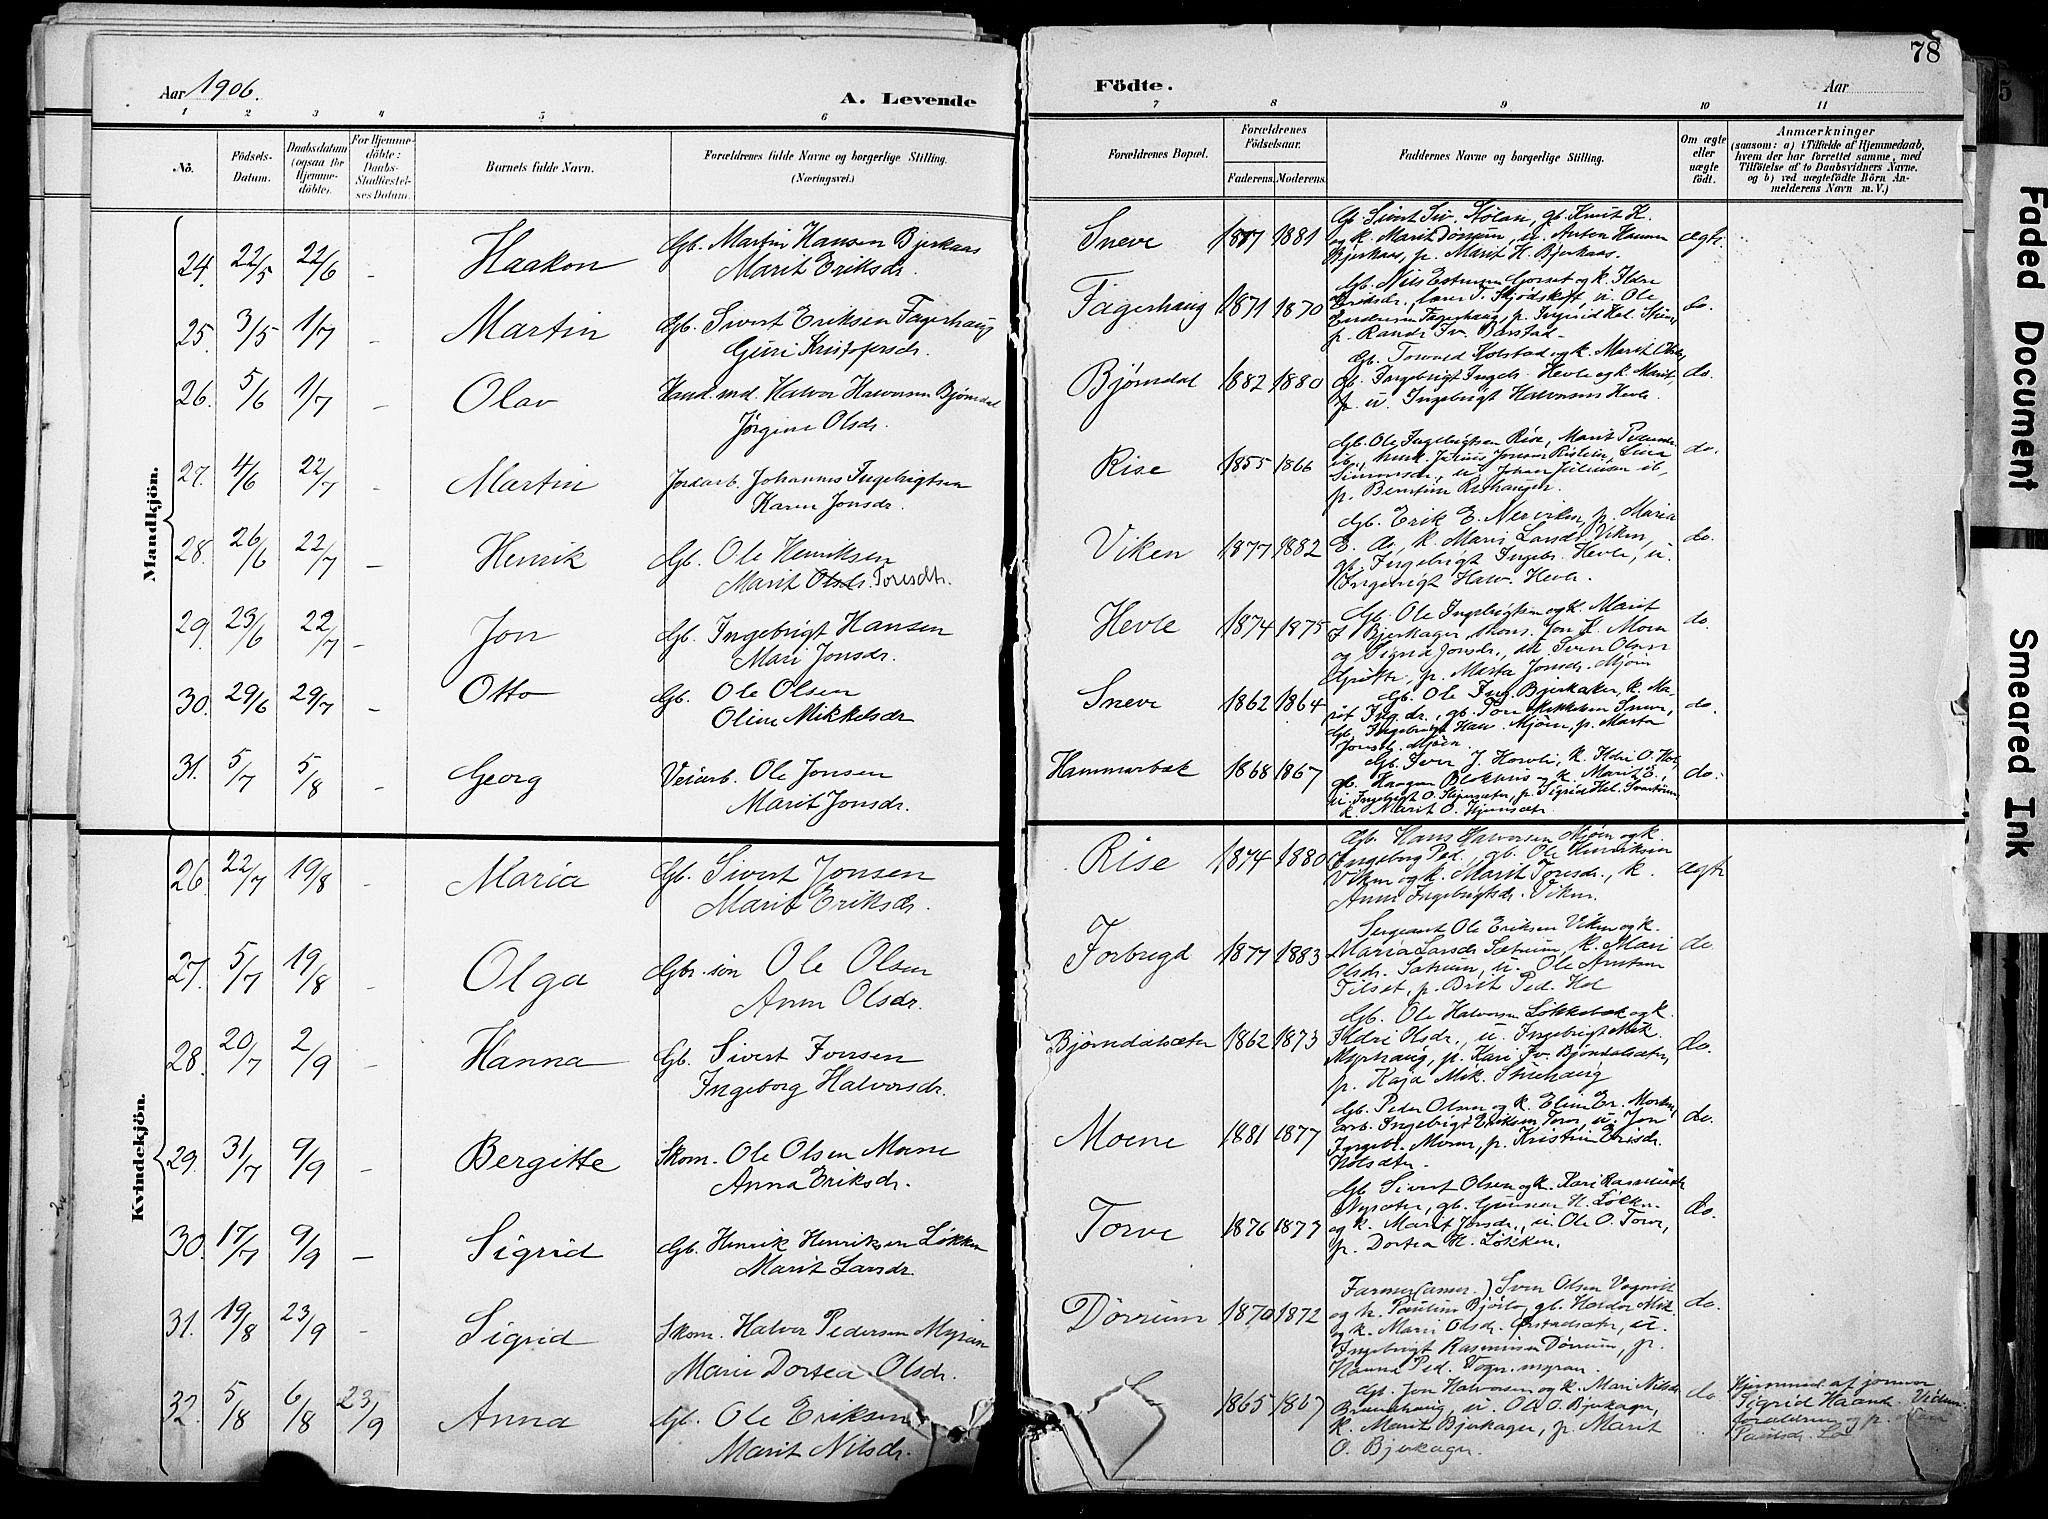 78
Aar 1906.
A. Levende
Födte.
Aar
1 2 3 4 5 6 7 8 9 10 11
No.
Födsels-Datum.
Daabsdatum (ogsaa for Hjemmedöbte).
For Hjemmedöbte: Daabs-Stadfæstelses Datum.
Barnets fulde Navn.
Forældrenes fulde Navne og borgerlige Stilling. (Næringsvei.)
Forældrenes Bopæl.
Forældrenes Födselsaar.
Faderens. Moderens.
Faddernes Navne og borgerlige Stilling.
Om ægte eller uægte födt.
Anmærkninger
(saasom: a) i Tilfælde af Hjemmedaab, hvem der har forrettet samme, med Tilföielse af to Daabsvidners Navne. og b) ved uægtefödte Börn Anmelderens Navn m. V.)
Mandkjön.
24. 22/5 22/6 - Haakon Gb. Martin Hansen Bjerkaas
Marit Eriksdr. Sneve 1877 1881 Gb. Sivert Siv. Stølan, gb. Knut H.
og k. Marit Dørrum, u. Anton Hansen
Bjerkaas, p. Marit H. Bjerkaas. ægte
25. 3/5 1/7 - Martin Gb. Sivert Eriksen Fagerhaug
Guri Kristofersdr. Fagerhaug 1871 1870 Gb. Nils Estensen Gorset og k. Ildri
u. Ole
Endresen Fagerhaug, p. Ingrid
p. Randi Iv. Barstad. do.
26. 5/6 1/7 - Olav Hand.md. Halvor Halvorsen Bjørndal
Jørgine Olsdr. Bjørndal 1882 1880 Gb. Torvald Holstad og k. Marit
gb. Ingebrigt Ingebr. Hevle og k. Marit,
p. u. Ingebrigt Halvorsen Hevle. do.
27. 4/6 22/7 Martin Jordarb. Johannes Ingebrigtsen
Karen Jonsdr. Rise 1855 1866 Gb. Ole Ingebrigtsen Rise, Marit
ib., Julius Jonsen
u. Johan Juliussen ib,
p. do.
28. 26/6 22/7 - Henrik Gb. Ole Henriksen
Marit Olsdr. Toresdtr. Viken 1877 1882 Gb. Erik E. Nerviken, p. Maria
E. do, k. Mari Larsdr Viken,
gb. Ingebrigt Ingebr. Hevle, u.
Ingebrigt Halv. Hevle. do.
29. 23/6 22/7 - Jon Gb. Ingebrigt Hansen
Mari Jonsdr. Hevle 1874 1875 Gb. Ole Ingebrigtsen og k. Marit
I. Bjerkager, Jon J. Moen
og Sigrid Jonsdr., u. Sven Olsen
p. Marta Jonsdr. Mjøen do.
30. 29/6 29/7 - Otto Gb. Ole Olsen
Oline Mikkelsdr Sneve 1862 1864 Gb. Ole Ing. Bjerkaker, k. Ma-
rit Ing.dr., gb. Tore Mikkelsen Sneve,
Gb. Ingebrigt Hans. Mjøen, p. Marta
Jonsdr. Mjøen. do.
31. 5/7 5/8 - Georg Veiarb. Ole Jonsen
Marit Jonsdr. Hammerbæk 1868 1867 Gb. Iver J. Horvli, k. Ildri O. Hol,
gb. Haagen Blokhus og k. Marit E.,
u. Ingebrigt O.
k. Marit O. do.
Kvindekjön.
26 22/7 19/8 - Maria Gb. Sivert Jonsen
Marit Eriksdr. Rise 1874 1880 Gb. Hans Halvorsen Mjøen og k.
Ingeborg Ped., gb. Ole Henriksen
Viken og k. Marit Toresdr., k.
Anne Ingebrigtsdr. Viken. ægte
27. 5/7 19/8 - Olga Gbr. søn Ole Olsen
Anne Olsdr. Forbregd 1877 1883 Sergeant Ole Eriksen Viken og k.
Maria Larsdr Sætrum, k. Mari
Olsdr. Sætrum, u. Ole Arntsen
Tilset, p. Brit Ped. Hol do.
28. 20/7 2/9 - Hanna Gb. Sivert Jonsen
Ingeborg Halvorsdr. Bjørndalsæter 1862 1873 Gb. Ole Halvorsen Løkkebæk og k.
Ildri Olsdr., u. Ingebrigt Mik.
Myrhaug, p. Kari Iv. Bjøndalsæter,
p. Kaja Mik. Stuehaug do.
29. 31/7 9/9 - Bergitte Skom. Ole Olsen Moene
Anna Eriksdr. Moene 1881 1877 Gb. Peder Olsen og k. Eline Er. Morken,
arb. Ingebrigt Eriksen Torve, u. Jon
Ingebr. Moene, p. Kristine Eriksdr.
Holsæter. do.
30. 17/7 9/9 - Sigrid Gb. Henrik Henriksen Løkken
Marit Larsdr. Torve 1876 1877 Gb. Sivert Olsen og k. Kari Rasmusdr
Nysæter, gb. Gunnar H. Løkken
og k. Marit Jonsdr., u. Ole O. Torve,
p. Dortea H. Løkken. do.
31. 19/8 23/9 - Sigrid Skom. Halvor Pedersen Myran
Marie Dortea Olsdr. Dørrum 1870 1872 Farmer (amer.) Sven Olsen Vognild
og k. Pauline Bjørlo, gb. Haldor Mik.
og k. Mari Olsdr. Ørstadsæter, u.
Ingebrigt Rasmussen Dørrum, p.
Hanna Ped. Vogn.myran. do.
32. 5/8 6/8 23/9 Anna Gb. Ole Eriksen
Marit Nilsdr. 1865 1867 Gb. Jon Halvorsen og k. Mari Nilsdr
u. Ole O. Bjerkager,
k. Marit Bjerkager, p. Marit
O. Bjerkager. do. Hjemmed. af jomor
Sigrid Haand. Vidner:
forældrene og p.
Paulsdr.
Faded Document
Smeared Ink